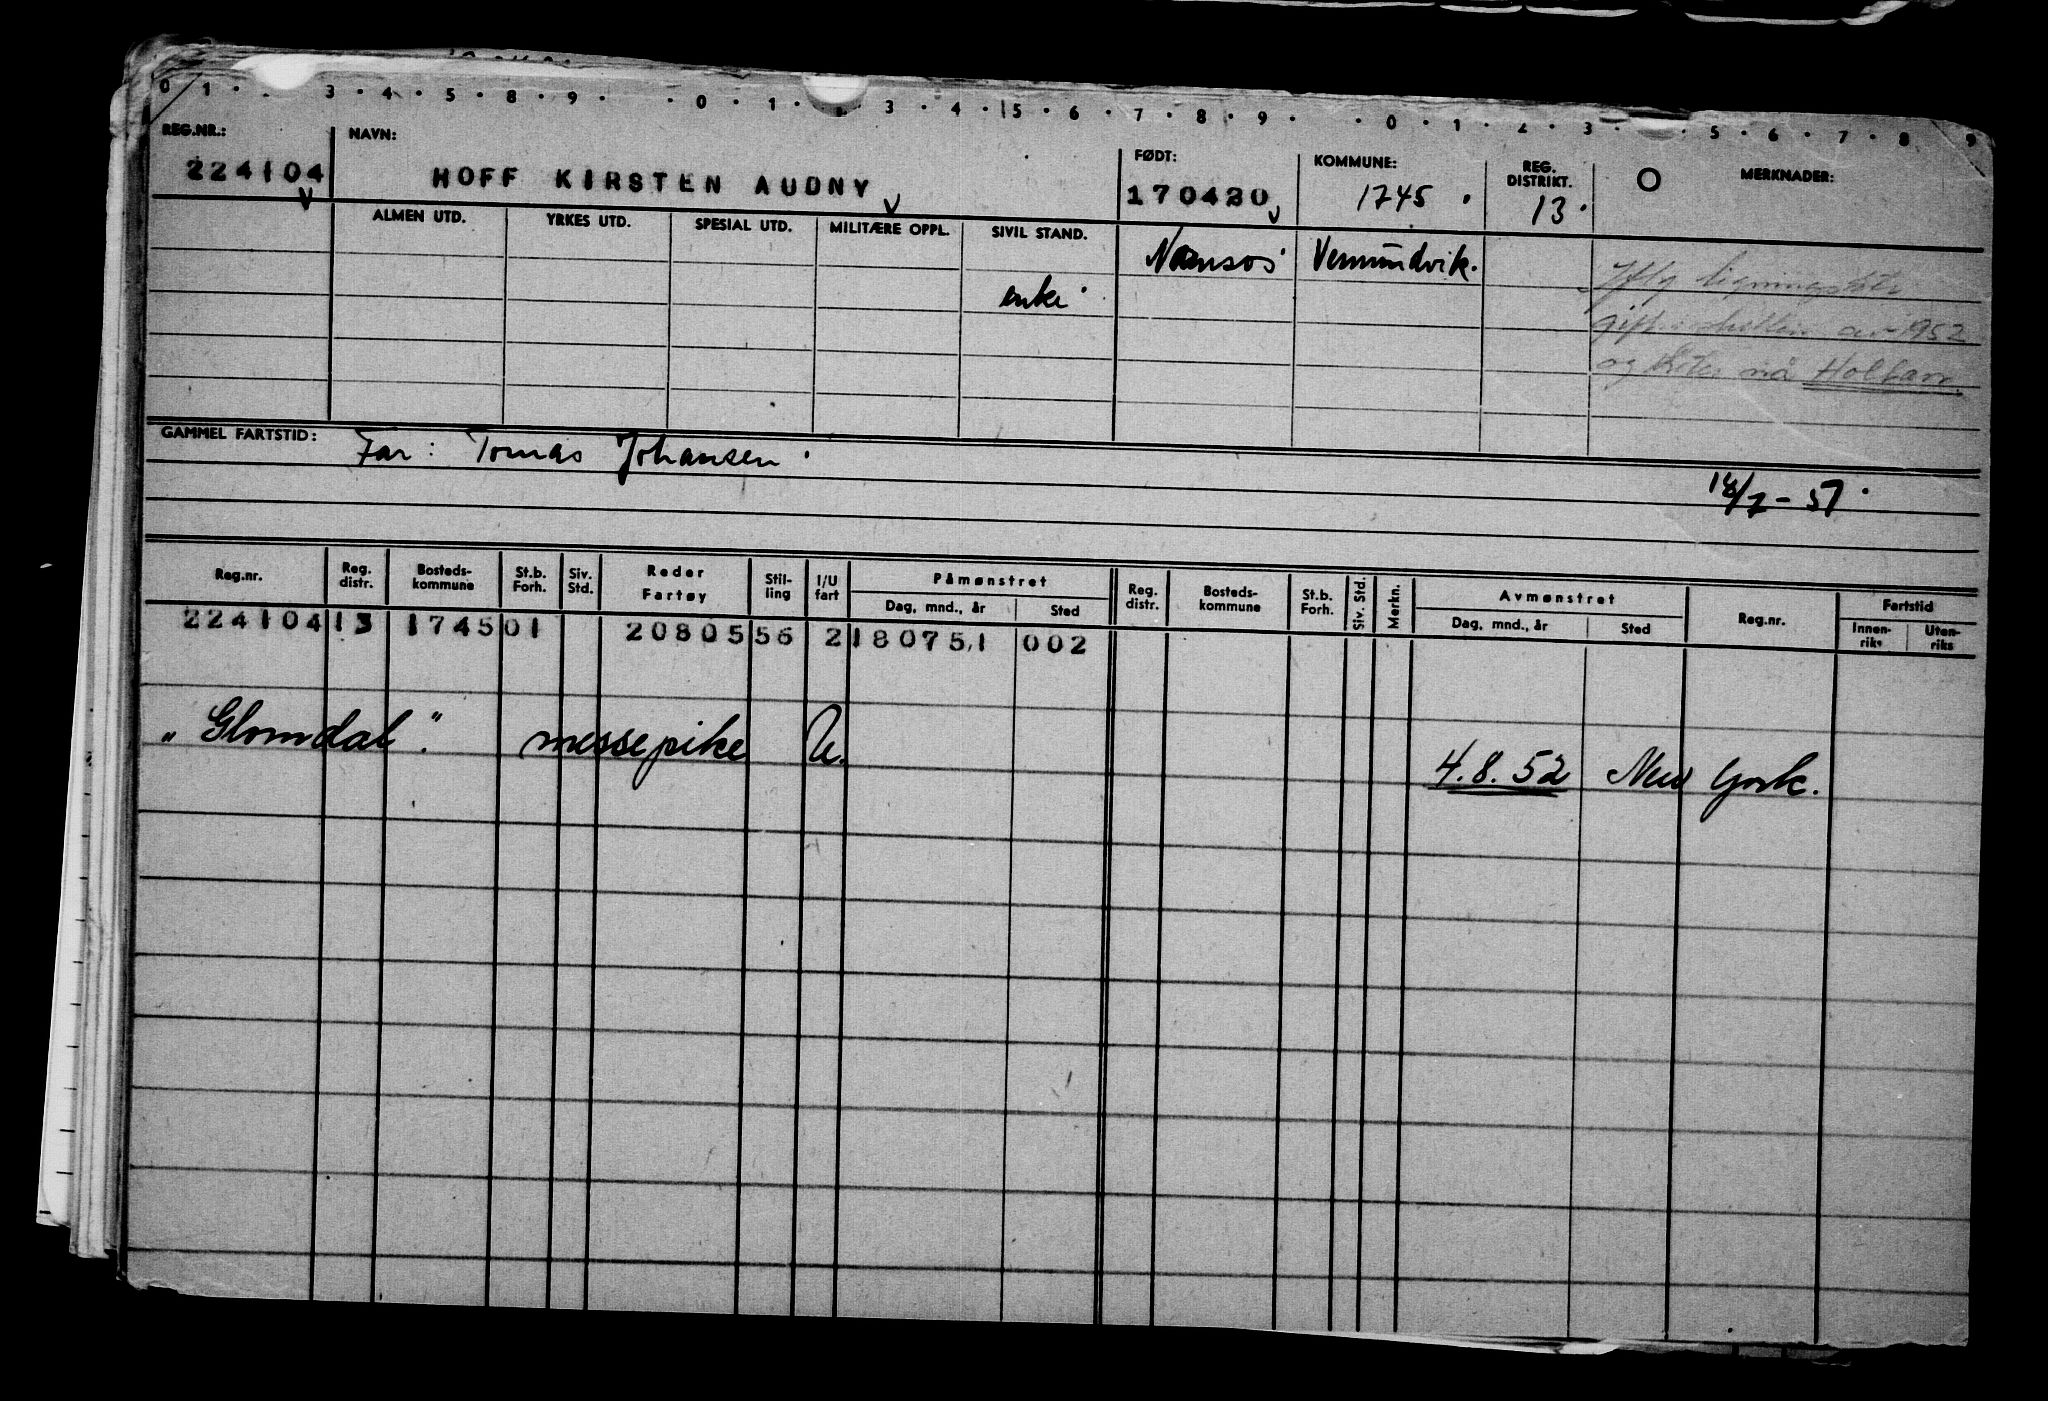 0 1 · 3 · 4 · 5 · 8 · 9 · · 0 · 1 · 3 · 4 · 5 · 6 · 7 · 8 · 9 · · 0 · 1 · 2 · 3 · 5 · 6 · 7 · 8 · 9
REG.NR.: NAVN: FØDT: KOMMUNE: REG. DISTRIKT. MERKNADER:
224104 HOFF KIRSTEN AUDNY 170420 1745 13
ALMEN UTD. YRKES UTD. SPESIAL UTD. MILITÆRE OPPL. SIVIL STAND.
Namsos Vemundvik.
enke
Iflg ligningsktr.
gift av 1952
og heter nå Holtan.
GAMMEL FARTSTID: Far: Tomas Johansen
18/7-51
Reg.nr. Reg. distr. Bosteds-kommune St.b. Forh. Siv. Std. Reder Fartøy Stil-ling I/U fart Påmønstret Dag, mnd., år Sted Reg. distr. Bosteds-kommune St.b. Forh. Siv. Std. Merkn. Avmønstret Dag, mnd., år Sted Reg.nr. Fartstid Innen-riks Uten-riks
224104 13 1745 01 20805 56 2 180751 002
"Glomdal". messepike U. 4.8.52 New York.